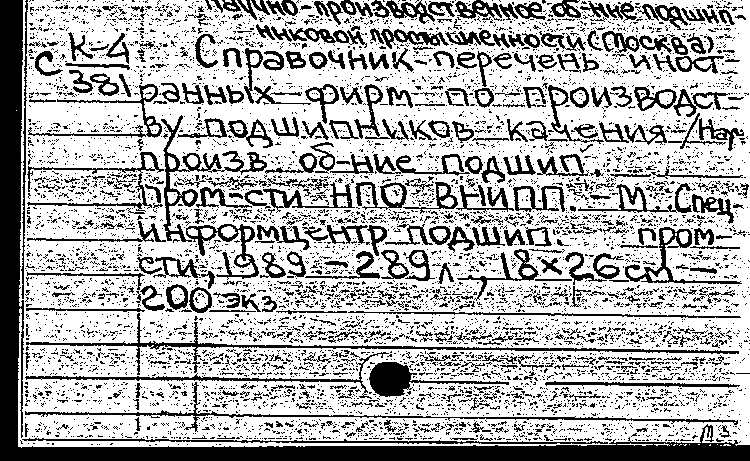 Научно-производственное об-ние подшип-
никовой промышленности (Москва)
С К-4
381
Справочник-перечень иност-
ранных фирм по производст-
ву подшипников качения / Науч.-
произв. об-ние подшип.
пром-сти НПО ВНИПП. - М.: Спец-
информцентр подшип. пром-
сти, 1989 - 289 л., 18×26 см. -
200 экз